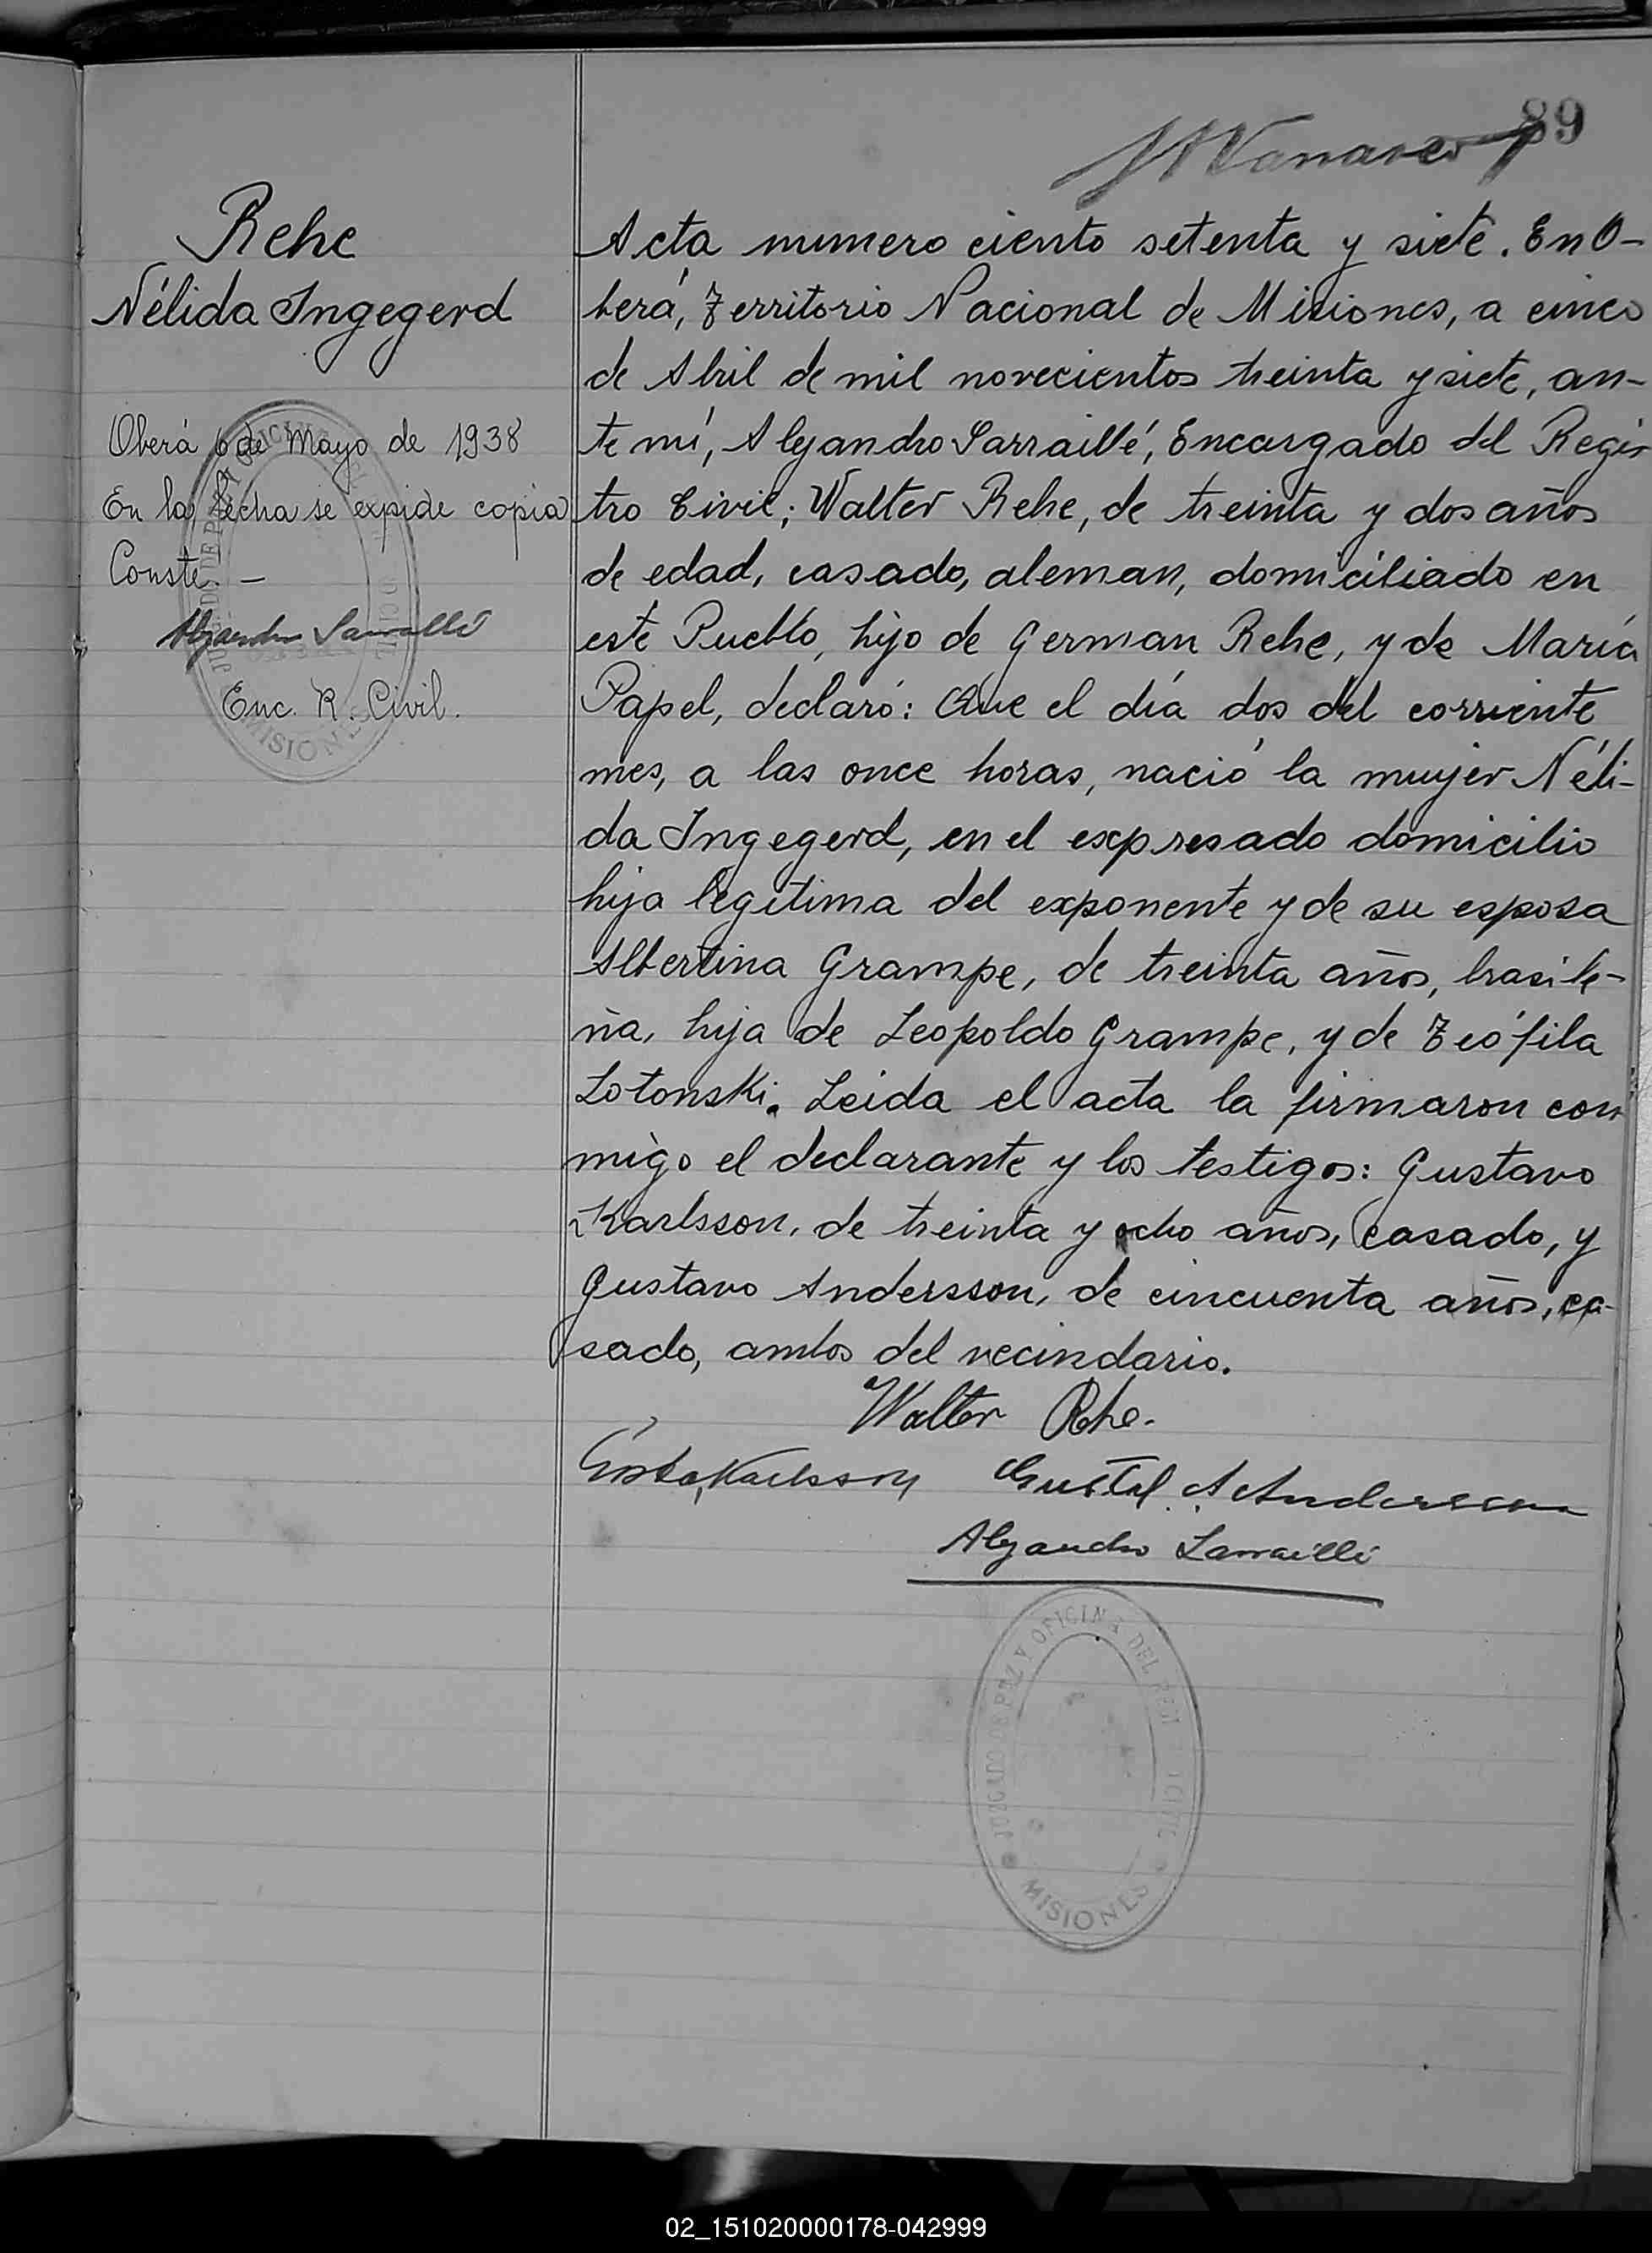 89
Rehe
Nélida Ingegerd
Oberá 6 de Mayo de 1938
En la fecha se expide copia
Conste. —
Alejandro Sarraillé
Enc. R. Civil.
Acta numero ciento setenta y siete. En O-
berá, Territorio Nacional de Misiones, a cinco
de Abril de mil novecientos treinta y siete, an-
te mí, Alejandro Sarraillé, Encargado del Regis
tro Civil; Walter Rehe, de treinta y dos años
de edad, casado, aleman, domiciliado en
este Pueblo, hijo de German Rehe, y de María
Papel, declaró: Que el día dos del corriente
mes, a las once horas, nació la mujer Néli-
da Ingegerd, en el expresado domicilio
hija legítima del exponente y de su esposa
Albertina Grampe, de treinta años, brasile-
ña, hija de Leopoldo Grampe, y de Teófila
Lotonski. Leida el acta la firmaron con
migo el declarante y los testigos: Gustavo
Karlsson, de treinta y ocho años, casado, y
Gustavo Andersson, de cincuenta años, ca-
sado, ambos del vecindario.
Walter Rehe.
Gösta Karlsson Gustaf A Andersson
Alejandro Sarraillé
JUZGADO DE PAZ Y OFICINA DEL REGI CIVIL
MISIONES
02_151020000178-042999